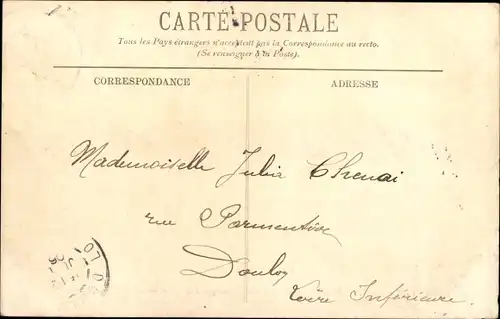 CARTE POSTALE
Tous les Pays étrangers n'acceptent pas la Correspondance au recto.
(Se renseigner à la Poste).
CORRESPONDANCE
ADRESSE
Mademoiselle Julia Chenai
rue Parmentier
Doulon
Loire Inférieure